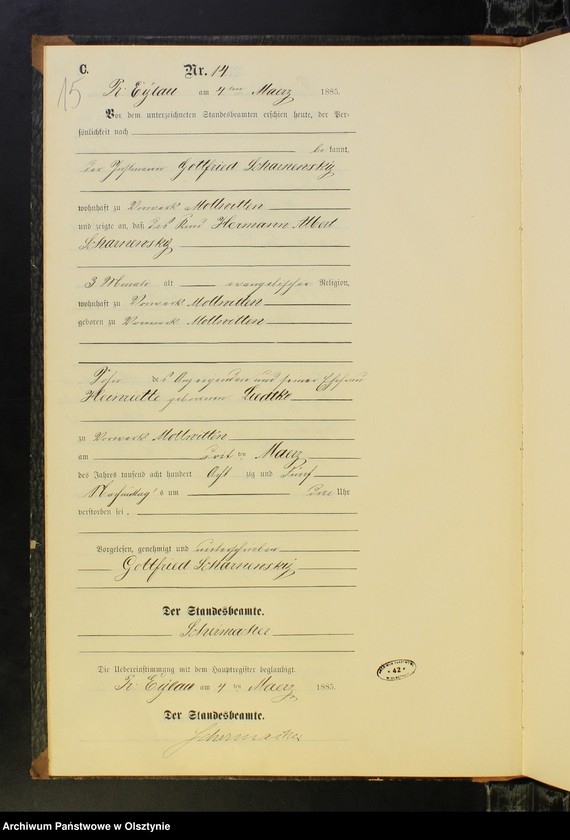 C.
Nr. 14
15
Pr. Eylau am 4ten Maerz 1885.
Vor dem unterzeichneten Standesbeamten erschien heute, der Per-
sönlichkeit nach
be kannt,
der Instmann Gottfried Scharnewsky
wohnhaft zu Vorwerk Mollwitten
und zeigte an, daß das Kind Hermann Albert
Scharnewsky
3 Monate alt evangelischer Religion,
wohnhaft zu Vorwerk Mollwitten
geboren zu Vorwerk Mollwitten
Sohn des Anzeigenden und seiner Ehefrau
Henriette geborenen Liedtke
zu Vorwerk Mollwitten
am ten Maerz
des Jahres tausend acht hundert Acht zig und Fünf
Nachmittag s um drei Uhr
verstorben sei.
Vorgelesen, genehmigt und unterschrieben
Gottfried Scharnewsky
Der Standesbeamte.
Schirmacher
Die Uebereinstimmung mit dem Hauptregister beglaubigt.
Pr. Eylau am 4ten Maerz 1885.
Der Standesbeamte.
Schirmacher
42
Archiwum Państwowe w Olsztynie